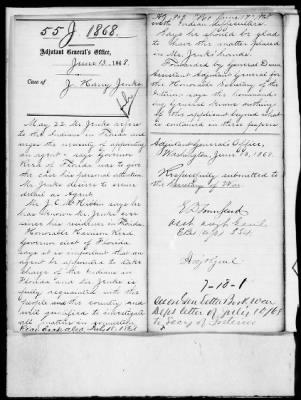 55 J 1868.
Adjutant General's Office,
June 13, 1868.
Case of
J. Harry Jenks
May 22 Mr. Jenks refers
to the Indians in Florida and
urges the necessity of appointing
an agent & says Governor
Reed of Florida was to give
the case his personal attention
Mr Jenks desires to secure
detail as Agent.
Mr. J. C. McKibbin says he
has known Mr. Jenks ever
since his residence in Florida
Honorable Harrison Reed,
Governor elect of Florida
says it is important that an
agent be appointed to take
charge of the Indians in
Florida and Mr Jenks is
fully acquainted with the
people and the country and
well qualified to
all matters in connection
with Indian difficulties
Says he should be glad
to have this matter placed
in Mr Jenks' hands.
Forwarded by General Dunn
Assistant Adjutant General for
the Honorable Secretary of the
Interior says this command-
ing General knows nothing
of the applicant beyond what
is contained in these papers
Adjutant General's Office,
Washington, June 1868.
Respectfully submitted to
the Secretary of War.
E D Townsend
Asst Adjt Genl
7-18-1
letter Book, War
Dept letter of July 10/68
to Secy of Interior